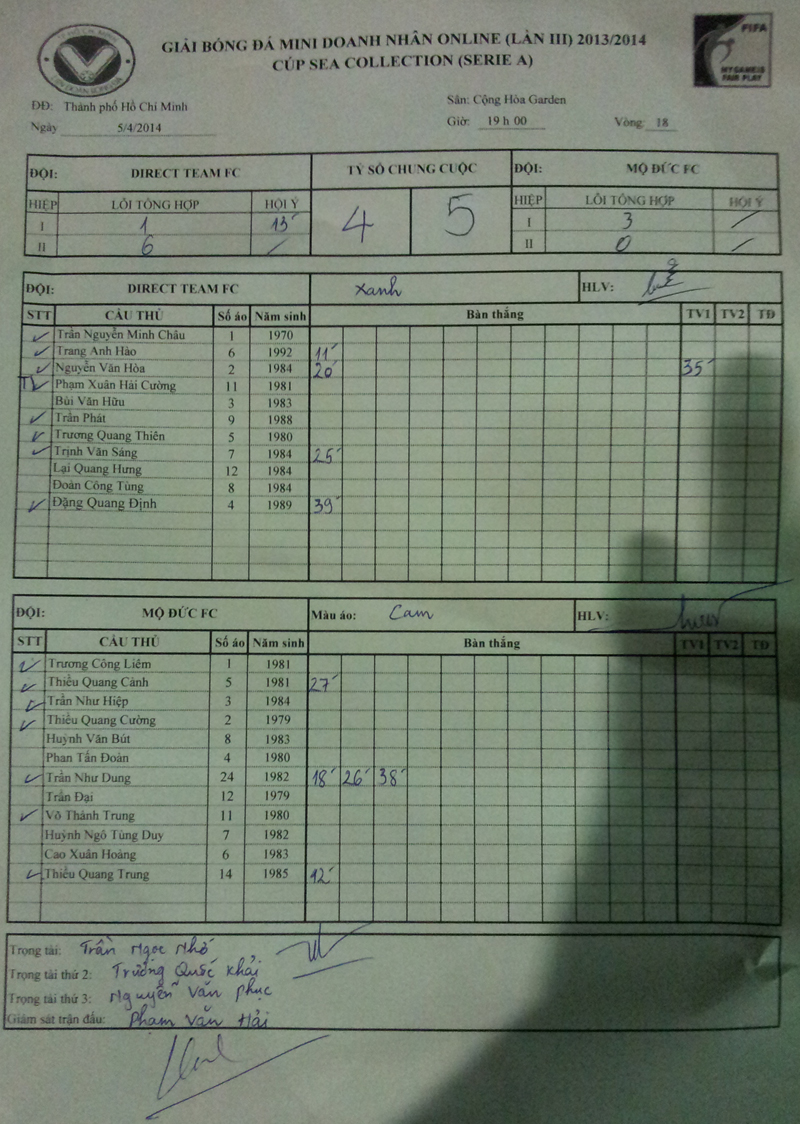 GIẢI BÓNG ĐÁ MINI DOANH NHÂN ONLINE (LẦN III) 2013/2014
CÚP SEA COLLECTION (SERIE A)
FIFA
MY GAME IS
FAIR PLAY
ĐĐ: Thành phố Hồ Chí Minh
Sân: Cộng Hòa Garden
Ngày 5/4/2014
Giờ: 19 h 00 Vòng 18
ĐỘI: DIRECT TEAM FC TỶ SỐ CHUNG CUỘC ĐỘI: MỘ ĐỨC FC
HIỆP LỖI TỔNG HỢP HỘI Ý 4 5 HIỆP LỖI TỔNG HỢP HỘI Ý
I 1 13' I 3 /
II 6 / II 0 /
ĐỘI: DIRECT TEAM FC Xanh HLV:
STT CẦU THỦ Số áo Năm sinh Bàn thắng TV1 TV2 TĐ
Trần Nguyễn Minh Châu 1 1970
Trang Anh Hào 6 1992 11'
Nguyễn Văn Hòa 2 1984 20' 35'
Phạm Xuân Hải Cường 11 1981
Bùi Văn Hữu 3 1983
Trần Phát 9 1988
Trương Quang Thiên 5 1980
Trịnh Văn Sáng 7 1984 25'
Lại Quang Hưng 12 1984
Đoàn Công Tùng 8 1984
Đặng Quang Định 4 1989 39'
ĐỘI: MỘ ĐỨC FC Màu áo: Cam HLV:
STT CẦU THỦ Số áo Năm sinh Bàn thắng TV1 TV2 TĐ
Trương Công Liêm 1 1981
Thiều Quang Cảnh 5 1981 27'
Trần Như Hiệp 3 1984
Thiều Quang Cường 2 1979
Huỳnh Văn Bút 8 1983
Phan Tấn Đoàn 4 1980
Trần Như Dung 24 1982 18' 26' 38'
Trần Đại 12 1979
Võ Thành Trung 11 1980
Huỳnh Ngô Tùng Duy 7 1982
Cao Xuân Hoàng 6 1983
Thiều Quang Trung 14 1985 12'
Trọng tài: Trần Ngọc Nhớ
Trọng tài thứ 2: Trương Quốc Khải
Trọng tài thứ 3: Nguyễn Văn Phục
Giám sát trận đấu: Phạm Văn Hải